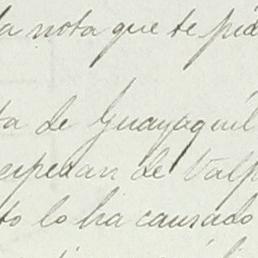 la nota que te pid
ta de Guayaquil
espedan de Valp
to lo ha causado